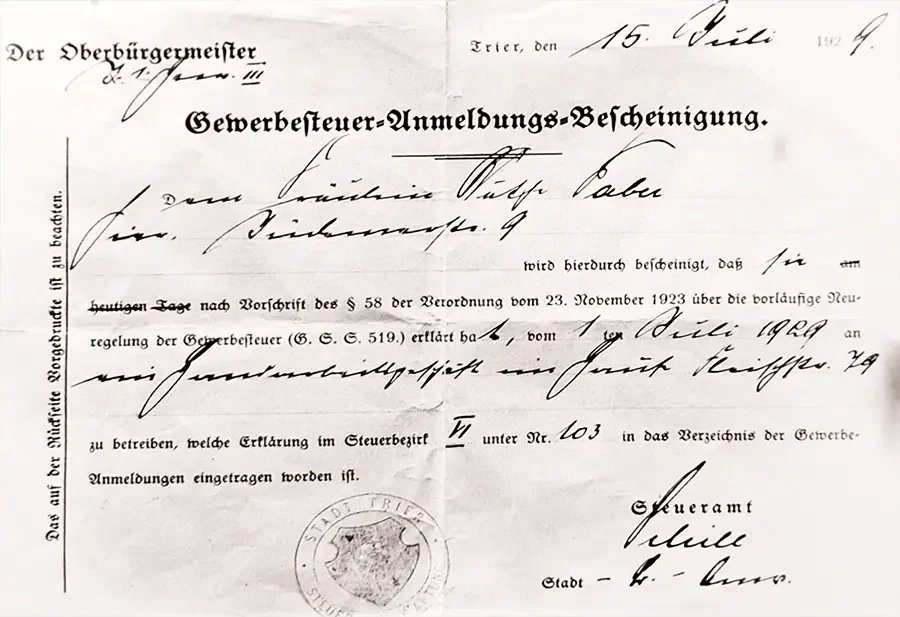 Der Oberbürgermeister
Trier, den 15. Juli 1929.
III
Gewerbesteuer-Anmeldungs-Bescheinigung.
Dem Fräulein Faber
hier, 9
wird hierdurch bescheinigt, daß sie am
heutigen Tage nach Vorschrift des § 58 der Verordnung vom 23. November 1923 über die vorläufige Neu-
regelung der Gewerbesteuer (G. S. S. 519.) erklärt hat, vom 1 ten Juli 1929 an
ein Handarbeitsgeschäft im Hause Fleischstr. 79
zu betreiben, welche Erklärung im Steuerbezirk VI unter Nr. 103 in das Verzeichnis der Gewerbe-
Anmeldungen eingetragen worden ist.
Das auf der Rückseite Vorgedruckte ist zu beachten.
Steueramt
Stadt
STADT TRIER